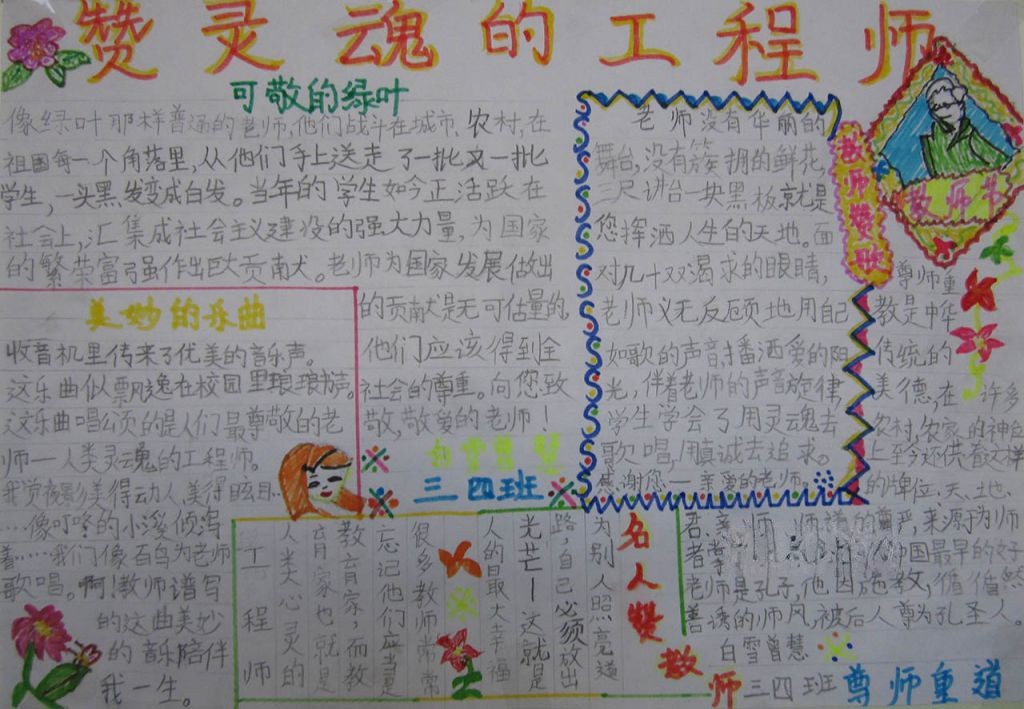 赞灵魂的工程师
可敬的绿叶
像绿叶那样普通的老师,他们战斗在城市、农村,在
祖国每一个角落里,从他们手上送走了一批又一批
学生,一头黑发变成白发。当年的学生如今正活跃在
社会上,汇集成社会主义建设的强大力量,为国家
的繁荣富强作出巨大贡南犬。老师为国家发展做出
的贡献是无可估量的,
他们应该得到全
社会的尊重。向您致
敬,敬爱的老师!
美妙的乐曲
收音机里传来了优美的音乐声。
这乐曲似飘逸在校园里琅琅
这乐曲唱颂的是人们最尊敬的老
师一人类灵魂的工程师。
我觉
美得动人,美得眩目…
…像叮咚的小溪倾泻
着……我们像百鸟为老师
歌唱。啊!教师谱写
的这曲美妙
的音乐陪伴
我一生。
三四班
老师没有华丽的
舞台,没有簇拥的鲜花,
三尺讲台一块黑板就是
您挥洒人生的天地。面
对几十双渴求的眼睛,
老师义无反顾地用自己
如歌的声音播洒爱的阳
光,伴着老师的声音旋律,
学生学会了用灵魂去
歌唱,用真诚去追求。
感谢您一亲爱的老师。
教师赞歌
教师节
尊师重
教是中华
传统的
美德,在许多
农村,农家的神台
上至今还供着
的牌位:天、地、
君、亲、师。师道的尊严,来源于为师
者
中国最早的
老师是孔子,他因施教,循循
善诱的师风,被后人尊为孔圣人。
白雪曾慧
名人赞教师
为别人照亮道
路,自己必须放出
光芒—这就是
人的最大幸福
很多教师常常
忘记他们应当是
教育家,而教
育家也就是
人类心灵的
工程师
三四班
尊师重道